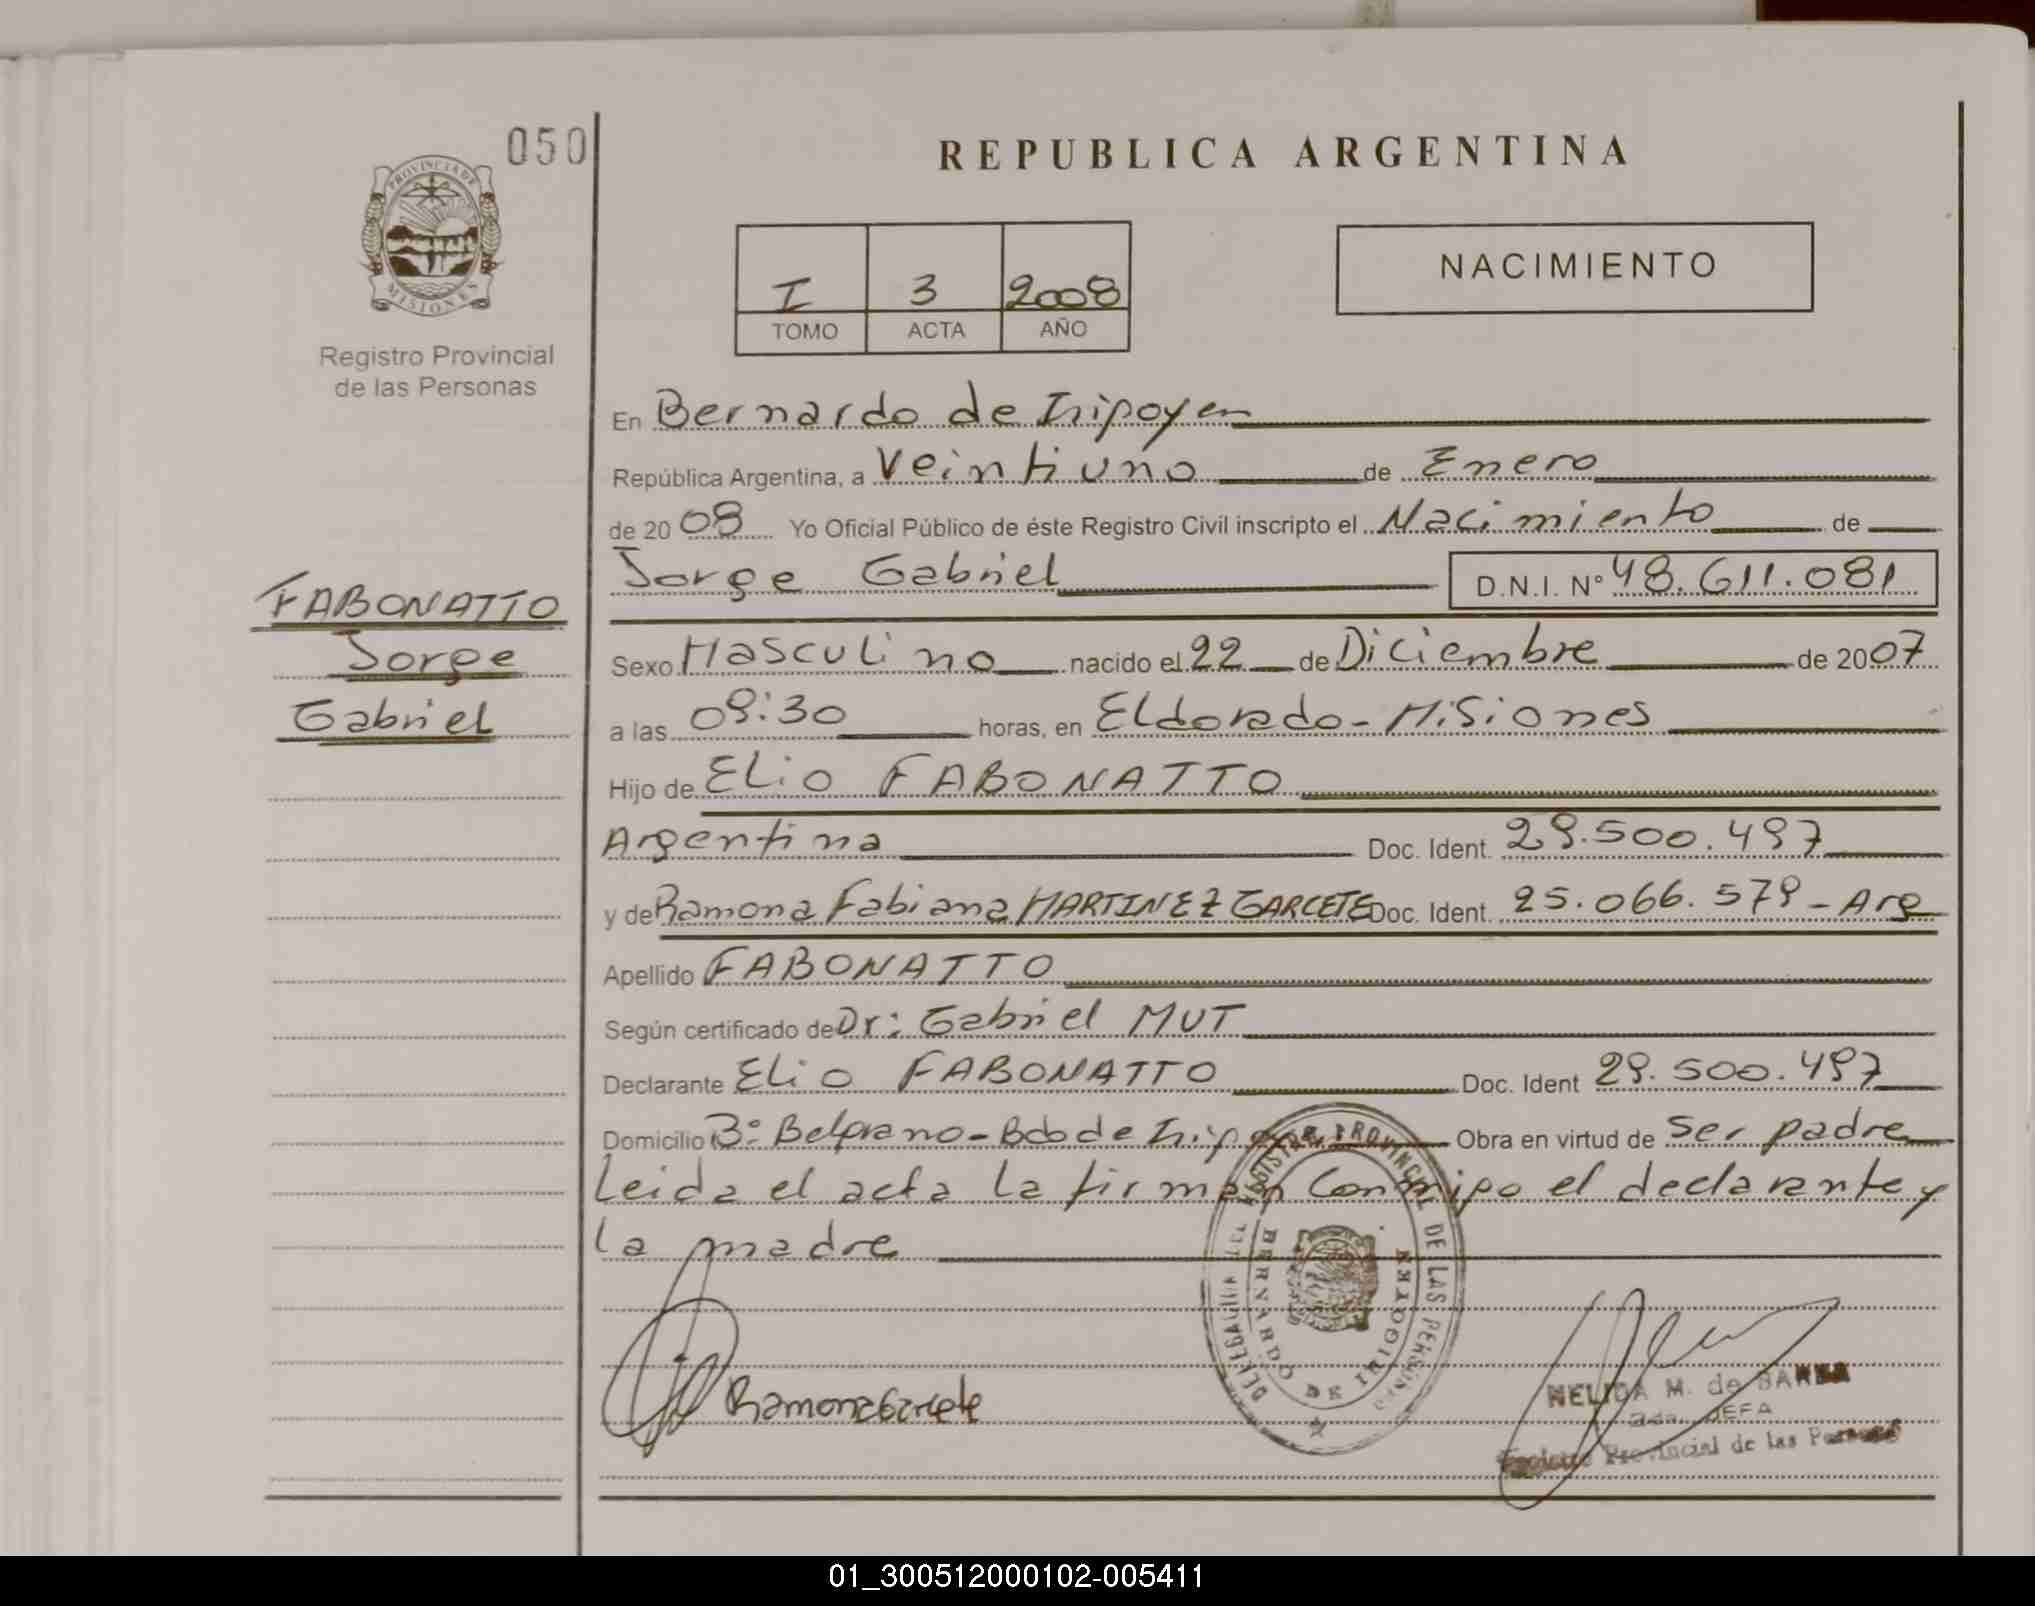 050
REPUBLICA ARGENTINA
PROVINCIA DE
MISIONES
Registro Provincial
de las Personas
I 3 2008
TOMO ACTA AÑO
NACIMIENTO
En Bernardo de Irigoyen
República Argentina, a Veintiuno de Enero
de 2008 Yo Oficial Público de éste Registro Civil inscripto el Nacimiento de
Jorge Gabriel D.N.I. N° 48.611.081
FABONATTO
Jorge
Gabriel
Sexo Masculino nacido el 22 de Diciembre de 2007
a las 09:30 horas, en Eldorado - Misiones
Hijo de Elio FABONATTO
Argentina Doc. Ident. 29.500.497
y de Ramona Fabiana MARTINEZ GARCETE Doc. Ident. 25.066.579 - Arg
Apellido FABONATTO
Según certificado de Dr: Gabriel MUT
Declarante Elio FABONATTO Doc. Ident 29.500.497
Domicilio B° Belgrano - Bdo de Irigoyen Obra en virtud de Ser padre
Leida el acta la firman Conmigo el declarante y
la madre
REGISTRO PROVINCIAL DE LAS PERSONAS
BERNARDO DE IRIGOYEN
Ramona Garcete
NELIDA M. de BARBA
JEFA
Provincial de las Personas
01_300512000102-005411